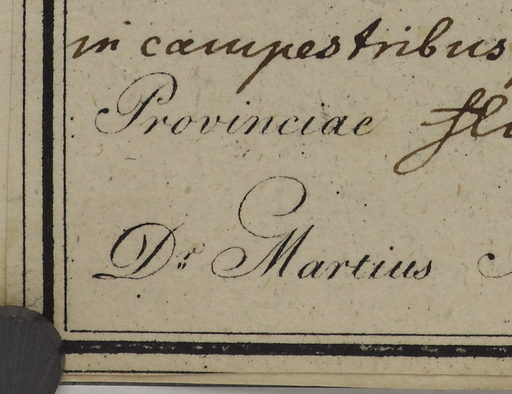 in campestribus
Provinciae
Dr. Martius